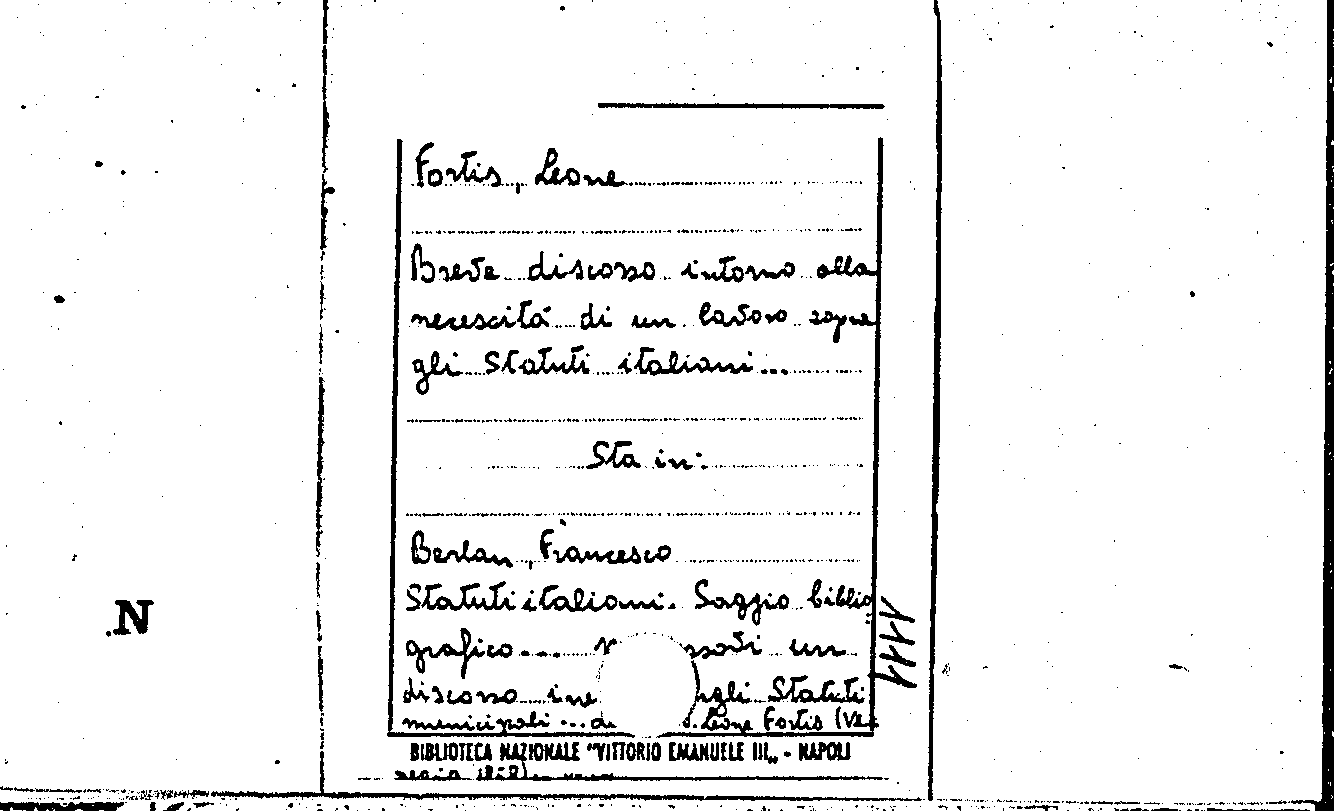 Fortis, Leone
Breve discorso intorno alla
necessità di un lavoro sopra
gli Statuti italiani...
Sta in:
Berlan, Francesco
Statuti italiani. Saggio biblio
grafico... un
discorso ine gli Statuti
municipali ... Leone Fortis (Ve
BIBLIOTECA NAZIONALE "VITTORIO EMANUELE III„ - NAPOLI
N
1111